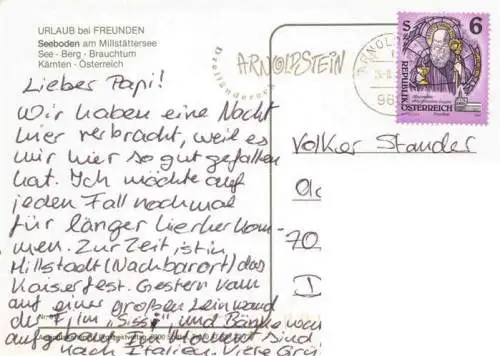 URLAUB bei FREUNDEN
Seeboden am Millstättersee
See - Berg - Brauchtum
Kärnten - Österreich
Lieber Papi!
Wir haben eine Nacht
hier verbracht, weil es
mir hier so gut gefallen
hat. Ich möchte auf
jeden Fall nochmal
für länger hierher kom-
men. Zur Zeit ist in
Millstadt (Nachbarort) das
Kaiserfest. Gestern kam
auf einer großen Leinwand
der Film "Sissi" und Bänke waren
aufgebaut. Im Moment sind
nach Italien. Viele Grü
Dreiländereck
ARNOLDSTEIN
ARNOLD
S 6
REPUBLIK
ÖSTERREICH
Volker Stander
70